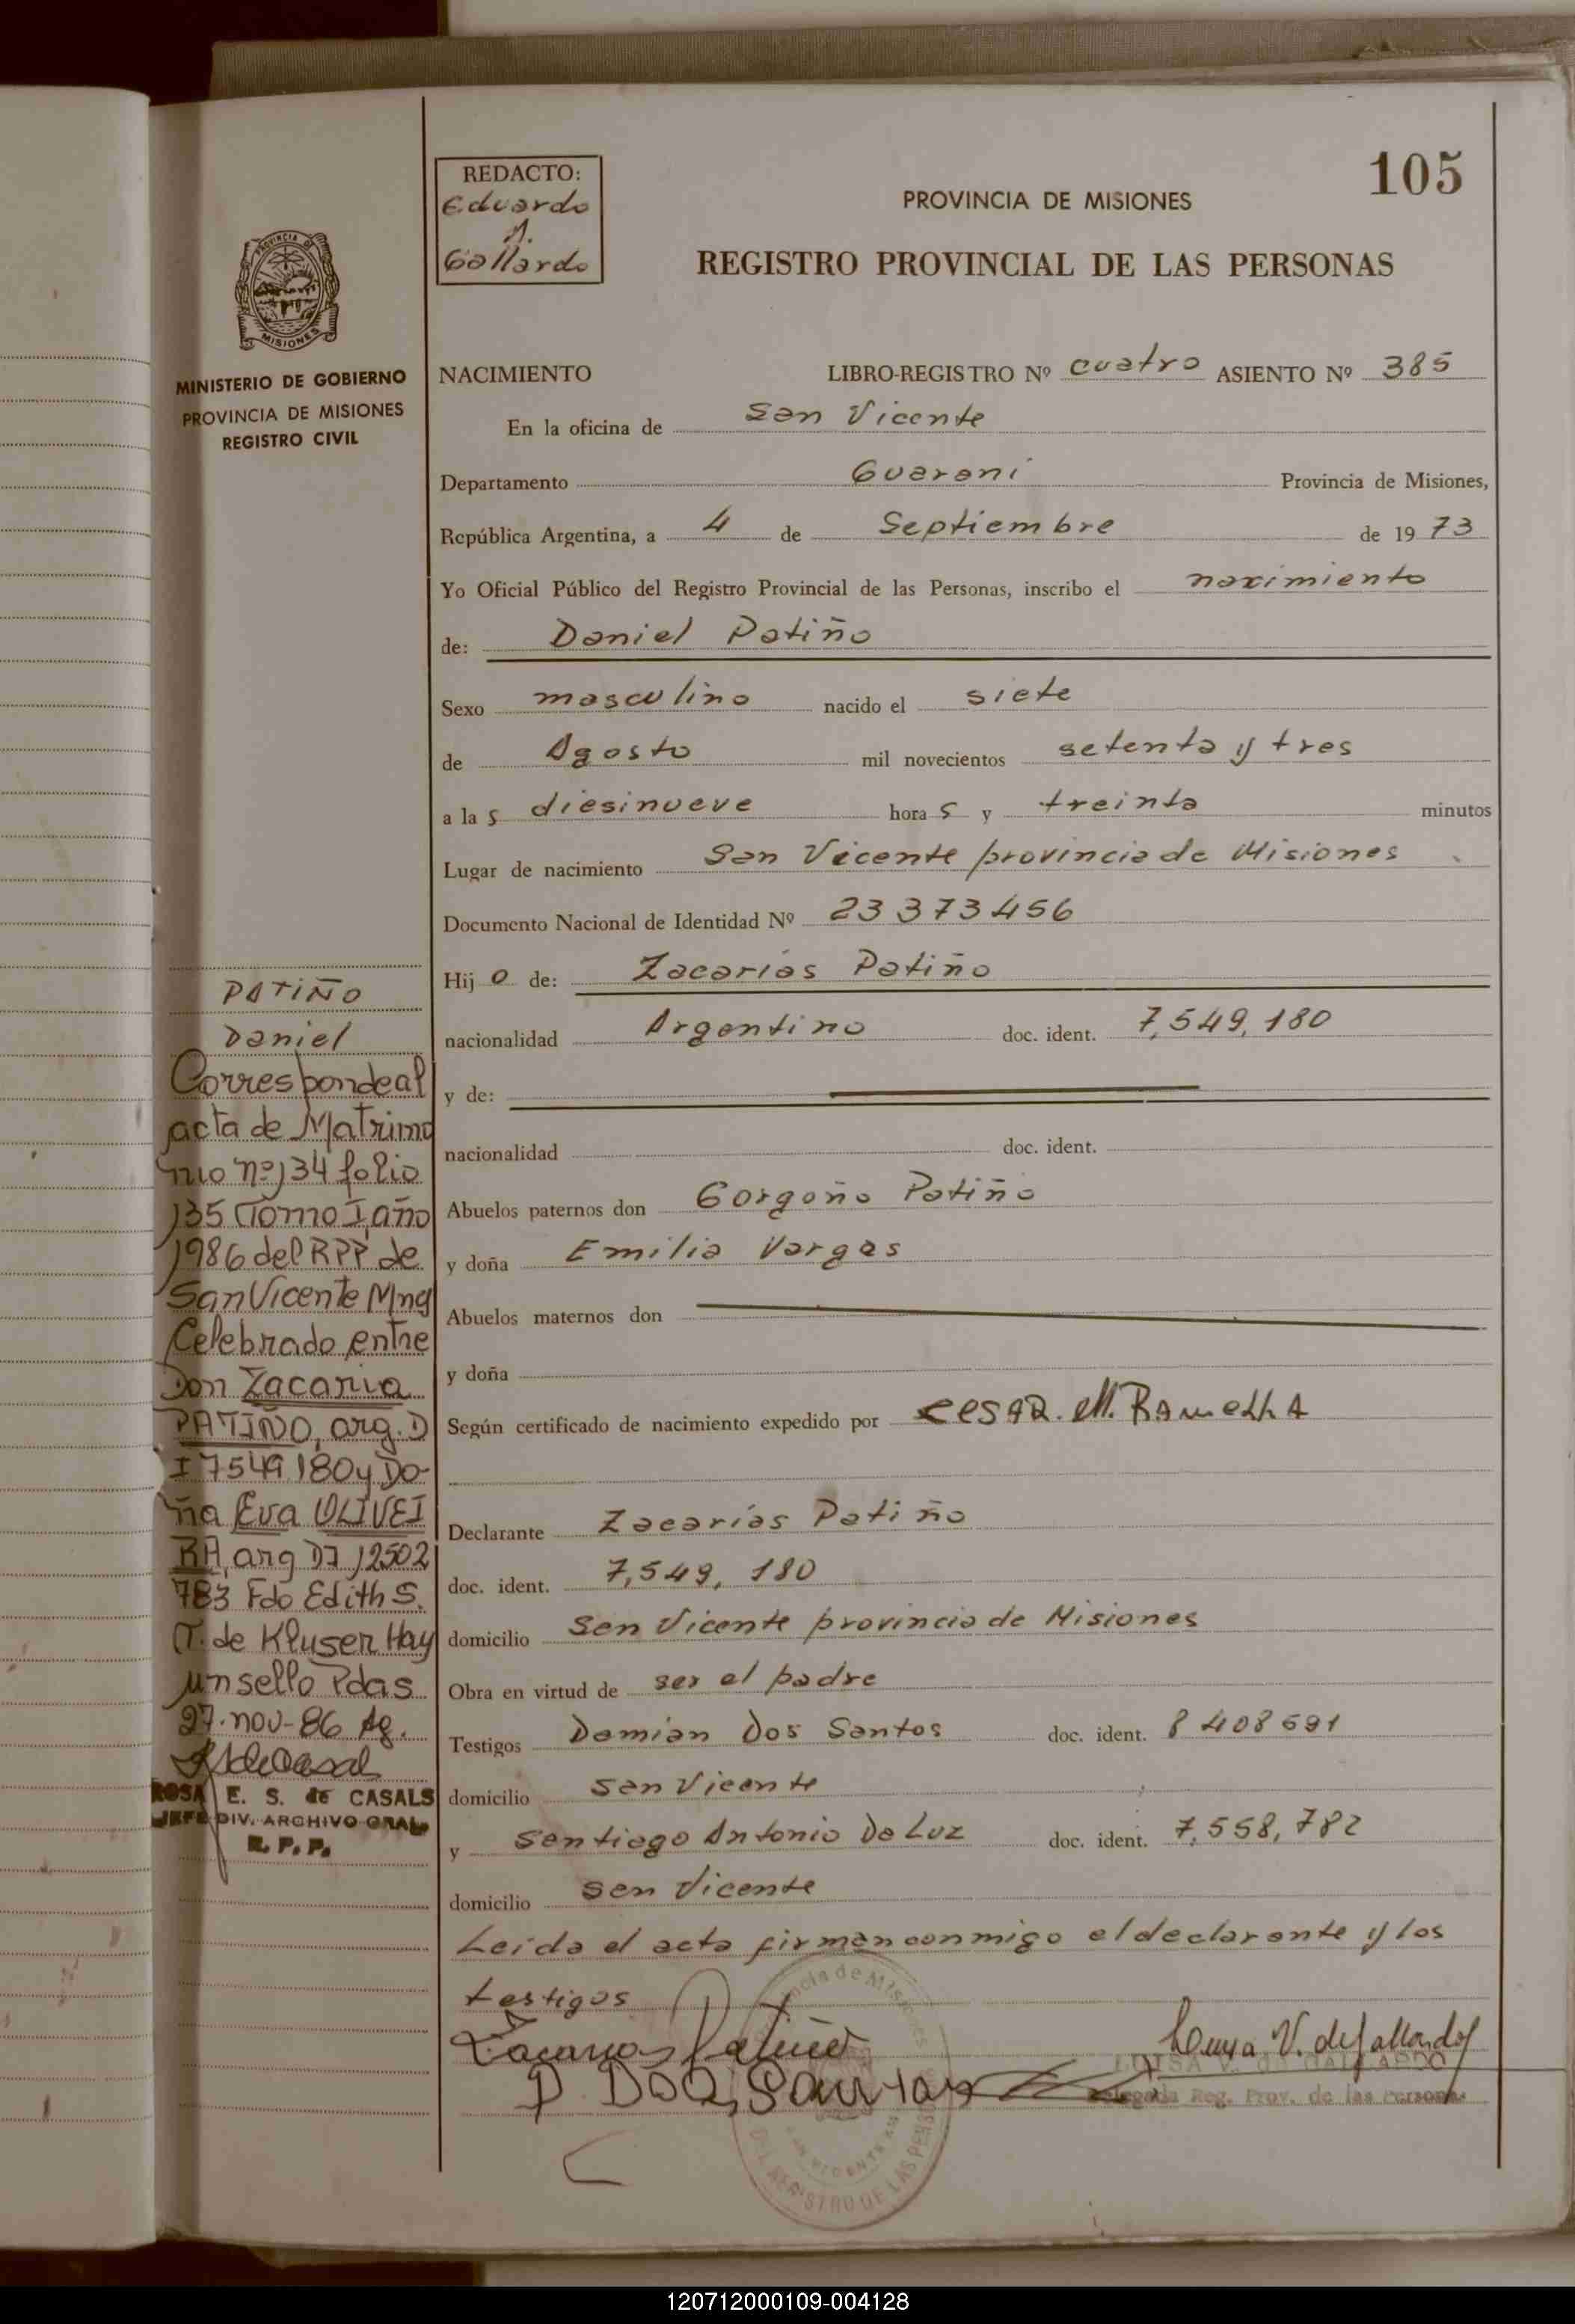 105
REDACTO:
Eduardo
A.
Gallardo
PROVINCIA DE MISIONES
REGISTRO PROVINCIAL DE LAS PERSONAS
PROVINCIA DE
MISIONES
MINISTERIO DE GOBIERNO
PROVINCIA DE MISIONES
REGISTRO CIVIL
NACIMIENTO LIBRO-REGISTRO Nº cuatro ASIENTO Nº 385
En la oficina de San Vicente
Departamento Guarani Provincia de Misiones,
República Argentina, a 4 de Septiembre de 1973
Yo Oficial Público del Registro Provincial de las Personas, inscribo el nacimiento
de: Daniel Patiño
Sexo masculino nacido el siete
de Agosto mil novecientos setenta y tres
a las diesinueve horas y treinta minutos
Lugar de nacimiento San Vicente provincia de Misiones
Documento Nacional de Identidad Nº 23373456
Hijo de: Zacarías Patiño
nacionalidad Argentino doc. ident. 7,549,180
y de:
nacionalidad doc. ident.
Abuelos paternos don Gorgoño Patiño
y doña Emilia Vargas
Abuelos maternos don
y doña
Según certificado de nacimiento expedido por CESAR. M. RAMELLA
Declarante Zacarías Patiño
doc. ident. 7,549,180
domicilio San Vicente provincia de Misiones
Obra en virtud de ser el padre
Testigos Damian Dos Santos doc. ident. 8408691
domicilio San Vicente
y Santiago Antonio Da Luz doc. ident. 7,558,782
domicilio San Vicente
Leida el acta firman conmigo el declarante y los
testigos
Zacarias Patiño
D. Dos Santos
Luisa V. de Gallardo
LUISA V. de GALLARDO
Delegada Reg. Prov. de las Personas
PATIÑO
Daniel
Corresponde al
acta de Matrimo
nio nº 134 folio
135 Tomo I año
1986 del RPP de
San Vicente Mnes
Celebrado entre
Don Zacaria
PATIÑO, arg. D
I 7549180 y Do-
ña Eva OLIVEI
RA, arg DI 12502
783 Fdo Edith S.
T. de Kluser Hay
un sello Pdas
27-nov-86 Ag.
ROSA E. S. de CASALS
JEFE DIV. ARCHIVO GRAL.
R. P. P.
120712000109-004128